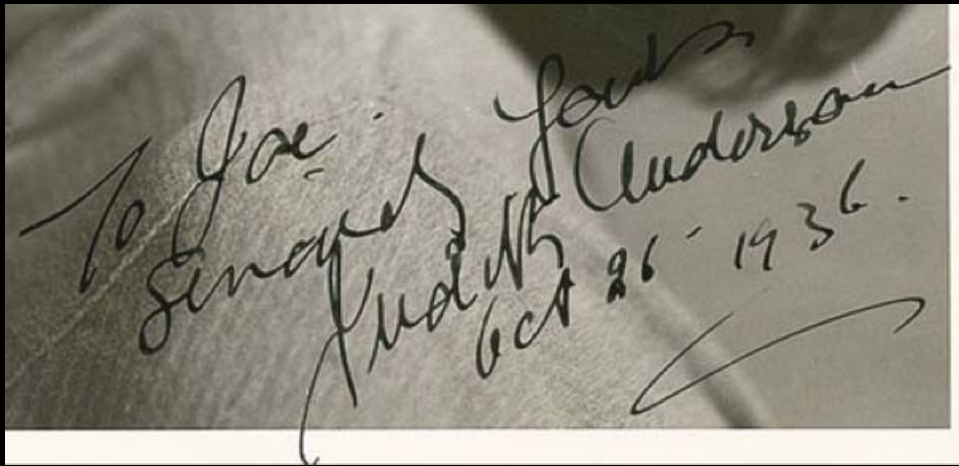 To Joe.
Sincerely Yours
Judith Anderson
Oct 26 1936.